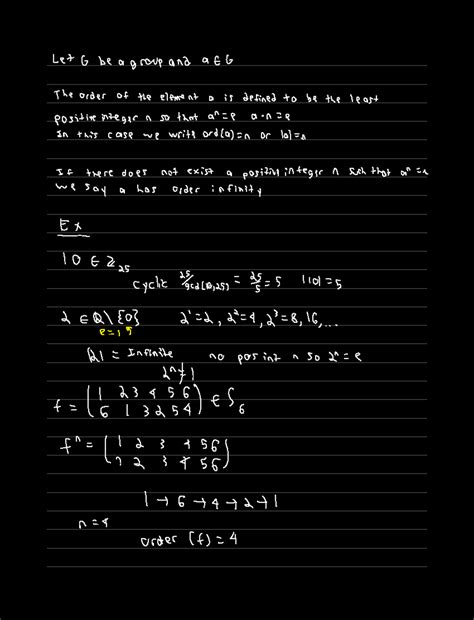 Let G be a group and a ∈ G
The order of the element a is defined to be the least
positive integer n so that aⁿ = e a·n = e
In this case we write ord(a) = n or |a| = n
If there does not exist a positive integer n such that aⁿ = e
we say a has order infinity
Ex
10 ∈ ℤ₂₅
cyclic 25/gcd(10,25) = 25/5 = 5 |10| = 5
2 ∈ ℚ\{0} 2¹ = 2, 2² = 4, 2³ = 8, 16, ...
e = 1
= Infinite no pos int n so 2ⁿ = e
2ⁿ ≠ 1
f = (1 2 3 4 5 6 / 6 1 3 2 5 4) ∈ S₆
fⁿ = (1 2 3 4 5 6 / 1 2 3 4 5 6)
1 → 6 → 4 → 2 → 1
n = 4
order (f) = 4